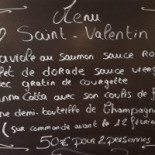 Menu
Saint-Valentin
au saumon sauce
de dorade sauce
avec gratin de courgette
Cotta avec son coulis de
demi-bouteille de Champagne
(sur commande avant le 12 février
50€ pour 2 personnes